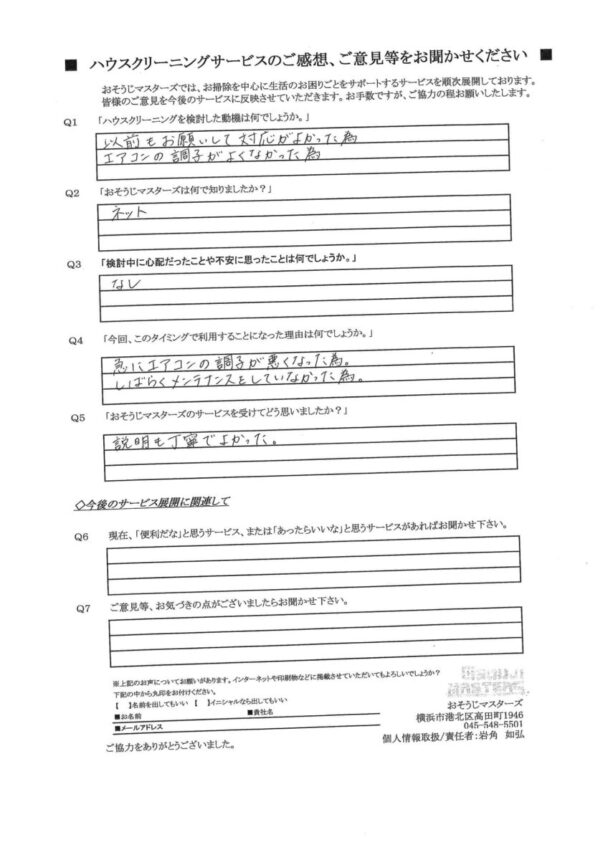 ■ ハウスクリーニングサービスのご感想、ご意見等をお聞かせください ■
おそうじマスターズでは、お掃除を中心に生活のお困りごとをサポートするサービスを順次展開しております。
皆様のご意見を今後のサービスに反映させていただきます。お手数ですが、ご協力の程お願いしたします。
Q1 「ハウスクリーニングを検討した動機は何でしょうか。」
以前もお願いして対応がよかった為
エアコンの調子がよくなかった為
Q2 「おそうじマスターズは何で知りましたか？」
ネット
Q3 「検討中に心配だったことや不安に思ったことは何でしょうか。」
なし
Q4 「今回、このタイミングで利用することになった理由は何でしょうか。」
急にエアコンの調子が悪くなった為。
しばらくメンテナンスをしていなかった為。
Q5 「おそうじマスターズのサービスを受けてどう思いましたか？」
説明も丁寧でよかった。
◇今後のサービス展開に関連して
Q6 現在、「便利だな」と思うサービス、または「あったらいいな」と思うサービスがあればお聞かせ下さい。
Q7 ご意見等、お気づきの点がございましたらお聞かせ下さい。
※上記のお声についてお願いがあります。インターネットや印刷物などに掲載させていただいてもよろしいでしょうか？
下記の中から丸印をお付けください。
【 】名前を出してもいい 【 】イニシャルなら出してもいい
■お名前 ■貴社名
■メールアドレス
ご協力をありがとうございました。
おそうじマスターズ
横浜市港北区高田町1946
045-548-5501
個人情報取扱/責任者:岩角 如弘